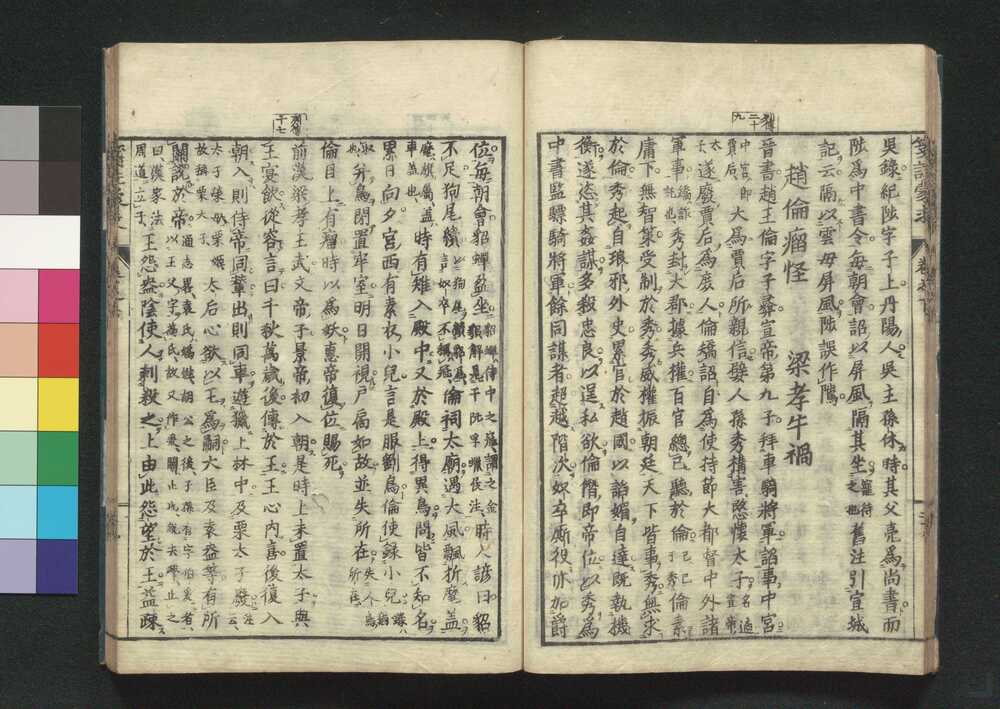 吳錄紀陟字子上丹陽人吳主孫休時其父亮爲尚書而
陟爲中書令每朝會詔以屏風隔其坐寵待之也舊注引宣城
記云隔以雲毋屏風陟誤作隲
趙倫瘤怪 梁孝牛禍
晉書趙王倫字子彜宣帝第九子拜車騎將軍諂事中宮
中宮即賈后大爲賈后所親信嬖人孫秀構害愍懷太子名遹
太遂廢賈后爲庶人倫矯詔自爲使持節大都督中外諸
軍事矯詐託也秀封大郡據兵權百官總己聽於倫倫素
庸下無智策受制於秀秀威權振朝廷天下皆事秀無求
於倫秀起自琅邪外史累官於趙國以諂媚自達既執機
衡遂恣其姦謀多殺忠良以逞私欲倫僭即帝位以秀爲
中書監驃騎將軍餘同謀者超越階次奴卒廝役亦加爵
位每朝會貂蟬盈坐時人諺曰貂
不足狗尾續倫祠太廟遇大風飄折麾蓋
時有雉入殿中又於殿上得異鳥問皆不知名
累日向夕宮西有素衣小兒言是服劉鳥倫使錄小兒
并鳥閉置牢室明日開視戶扃如故並失所在
倫目上有瘤時以爲妖惠帝復位賜死
前漢梁孝王武文帝子景帝初入朝是時上未置太子與
王宴飲從容言曰千秋萬歲後傳於王王心內喜後復入
朝入則侍帝同輦出則同車遊獵上林中及栗太子廢
太后心欲以王爲嗣大臣及袁盎等有所
關說於帝
王怨盎陰使人刺殺之上由此怨望於王益疎